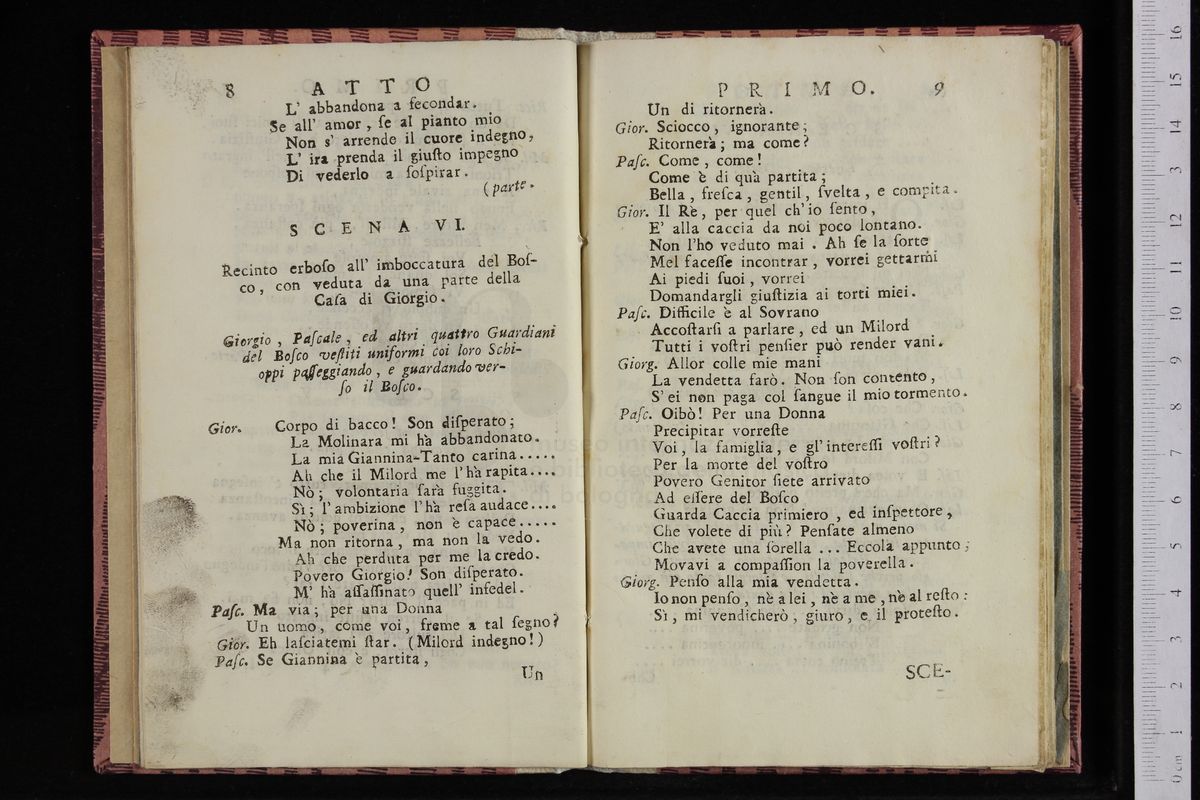 8 ATTO
L' abbandona a ſecondar.
Se all' amor, ſe al pianto mio
Non s' arrende il cuore indegno,
L' ira prenda il giuſto impegno
Di vederlo a ſoſpirar.
(parte.
SCENA VI.
Recinto erboſo all' imboccatura del Boſ-
co, con veduta da una parte della
Caſa di Giorgio.
Giorgio, Paſcale, ed altri quattro Guardiani
del Boſco veſtiti uniformi coi loro Schi-
oppi paſſeggiando, e guardando ver-
ſo il Boſco.
Gior. Corpo di bacco! Son diſperato;
La Molinara mi hà abbandonato.
La mia Giannina-Tanto carina.....
Ah che il Milord me l'hà rapita....
Nò; volontaria ſarà fuggita.
Sì; l'ambizione l'hà reſa audace....
Nò; poverina, non è capace.....
Ma non ritorna, ma non la vedo.
Ah che perduta per me la credo.
Povero Giorgio! Son diſperato.
M' hà aſſaſſinato quell' infedel.
Paſc. Ma via; per una Donna
Un uomo, come voi, freme a tal ſegno?
Gior. Eh laſciatemi ſtar. (Milord indegno!)
Paſc. Se Giannina è partita,
Un
PRIMO. 9
Un di ritornerà.
Gior. Sciocco, ignorante;
Ritornerà; ma come?
Paſc. Come, come!
Come è di quà partita;
Bella, freſca, gentil, ſvelta, e compita.
Gior. Il Rè, per quel ch'io ſento,
E' alla caccia da noi poco lontano.
Non l'hò veduto mai. Ah ſe la ſorte
Mel faceſſe incontrar, vorrei gettarmi
Ai piedi ſuoi, vorrei
Domandargli giuſtizia ai torti miei.
Paſc. Difficile è al Sovrano
Accoſtarſi a parlare, ed un Milord
Tutti i voſtri penſier può render vani.
Giorg. Allor colle mie mani
La vendetta farò. Non ſon contento,
S'ei non paga col ſangue il mio tormento.
Paſc. Oibò! Per una Donna
Precipitar vorreſte
Voi, la famiglia, e gl'intereſſi voſtri?
Per la morte del voſtro
Povero Genitor ſiete arrivato
Ad eſſere del Boſco
Guarda Caccia primiero, ed inſpettore,
Che volete di più? Penſate almeno
Che avete una ſorella ... Eccola appunto;
Movavi a compaſſion la poverella.
Giorg. Penſo alla mia vendetta.
Io non penſo, nè a lei, nè a me, nè al reſto:
Sì, mi vendicherò, giuro, e il proteſto.
SCE-